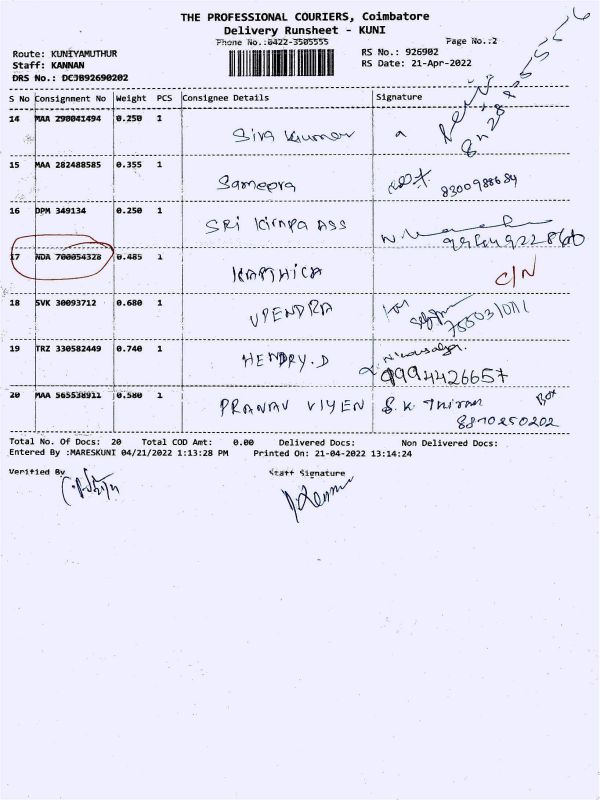 THE PROFESSIONAL COURIERS, Coimbatore
Delivery Runsheet - KUNI
Phone No.:0422-3505555 Page No.:2
Route: KUNIYAMUTHUR RS No.: 926902
Staff: KANNAN RS Date: 21-Apr-2022
DRS No.: DCJB92690202
S No Consignment No Weight PCS Consignee Details Signature
14 MAA 290041494 0.250 1 Siva Kumar
15 MAA 282488585 0.355 1 Sameera 8300988684
16 DPM 349134 0.250 1 SRI Kirupa ASS
17 NDA 700054328 0.485 1 KARTHICA C/N
18 SVK 30093712 0.680 1 UPENDRA
19 TRZ 330582449 0.740 1 HENDRY.D 9994426657
20 MAA 565538911 0.580 1 PRANAV VIYEN S.K. 8870250202
Total No. Of Docs: 20 Total COD Amt: 0.00 Delivered Docs: Non Delivered Docs:
Entered By :MARESKUNI 04/21/2022 1:13:28 PM Printed On: 21-04-2022 13:14:24
Verified By Staff Signature